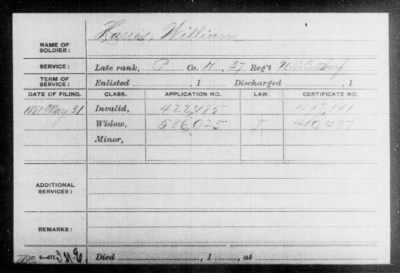 NAME OF SOLDIER: William
SERVICE: Late rank, P Co. H, 37 Reg't Inf
TERM OF SERVICE: Enlisted , 1 Discharged , 1
DATE OF FILING. CLASS. APPLICATION NO. LAW. CERTIFICATE NO.
May 31 Invalid, 422,485
Widow, 586,025 410,477
Minor,
ADDITIONAL SERVICES:
REMARKS:
Died , 1 , at